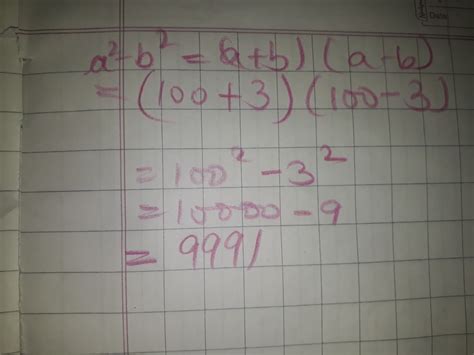 a² - b² = (a + b) (a - b)
= (100 + 3) (100 - 3)
= 100² - 3²
= 10000 - 9
= 9991